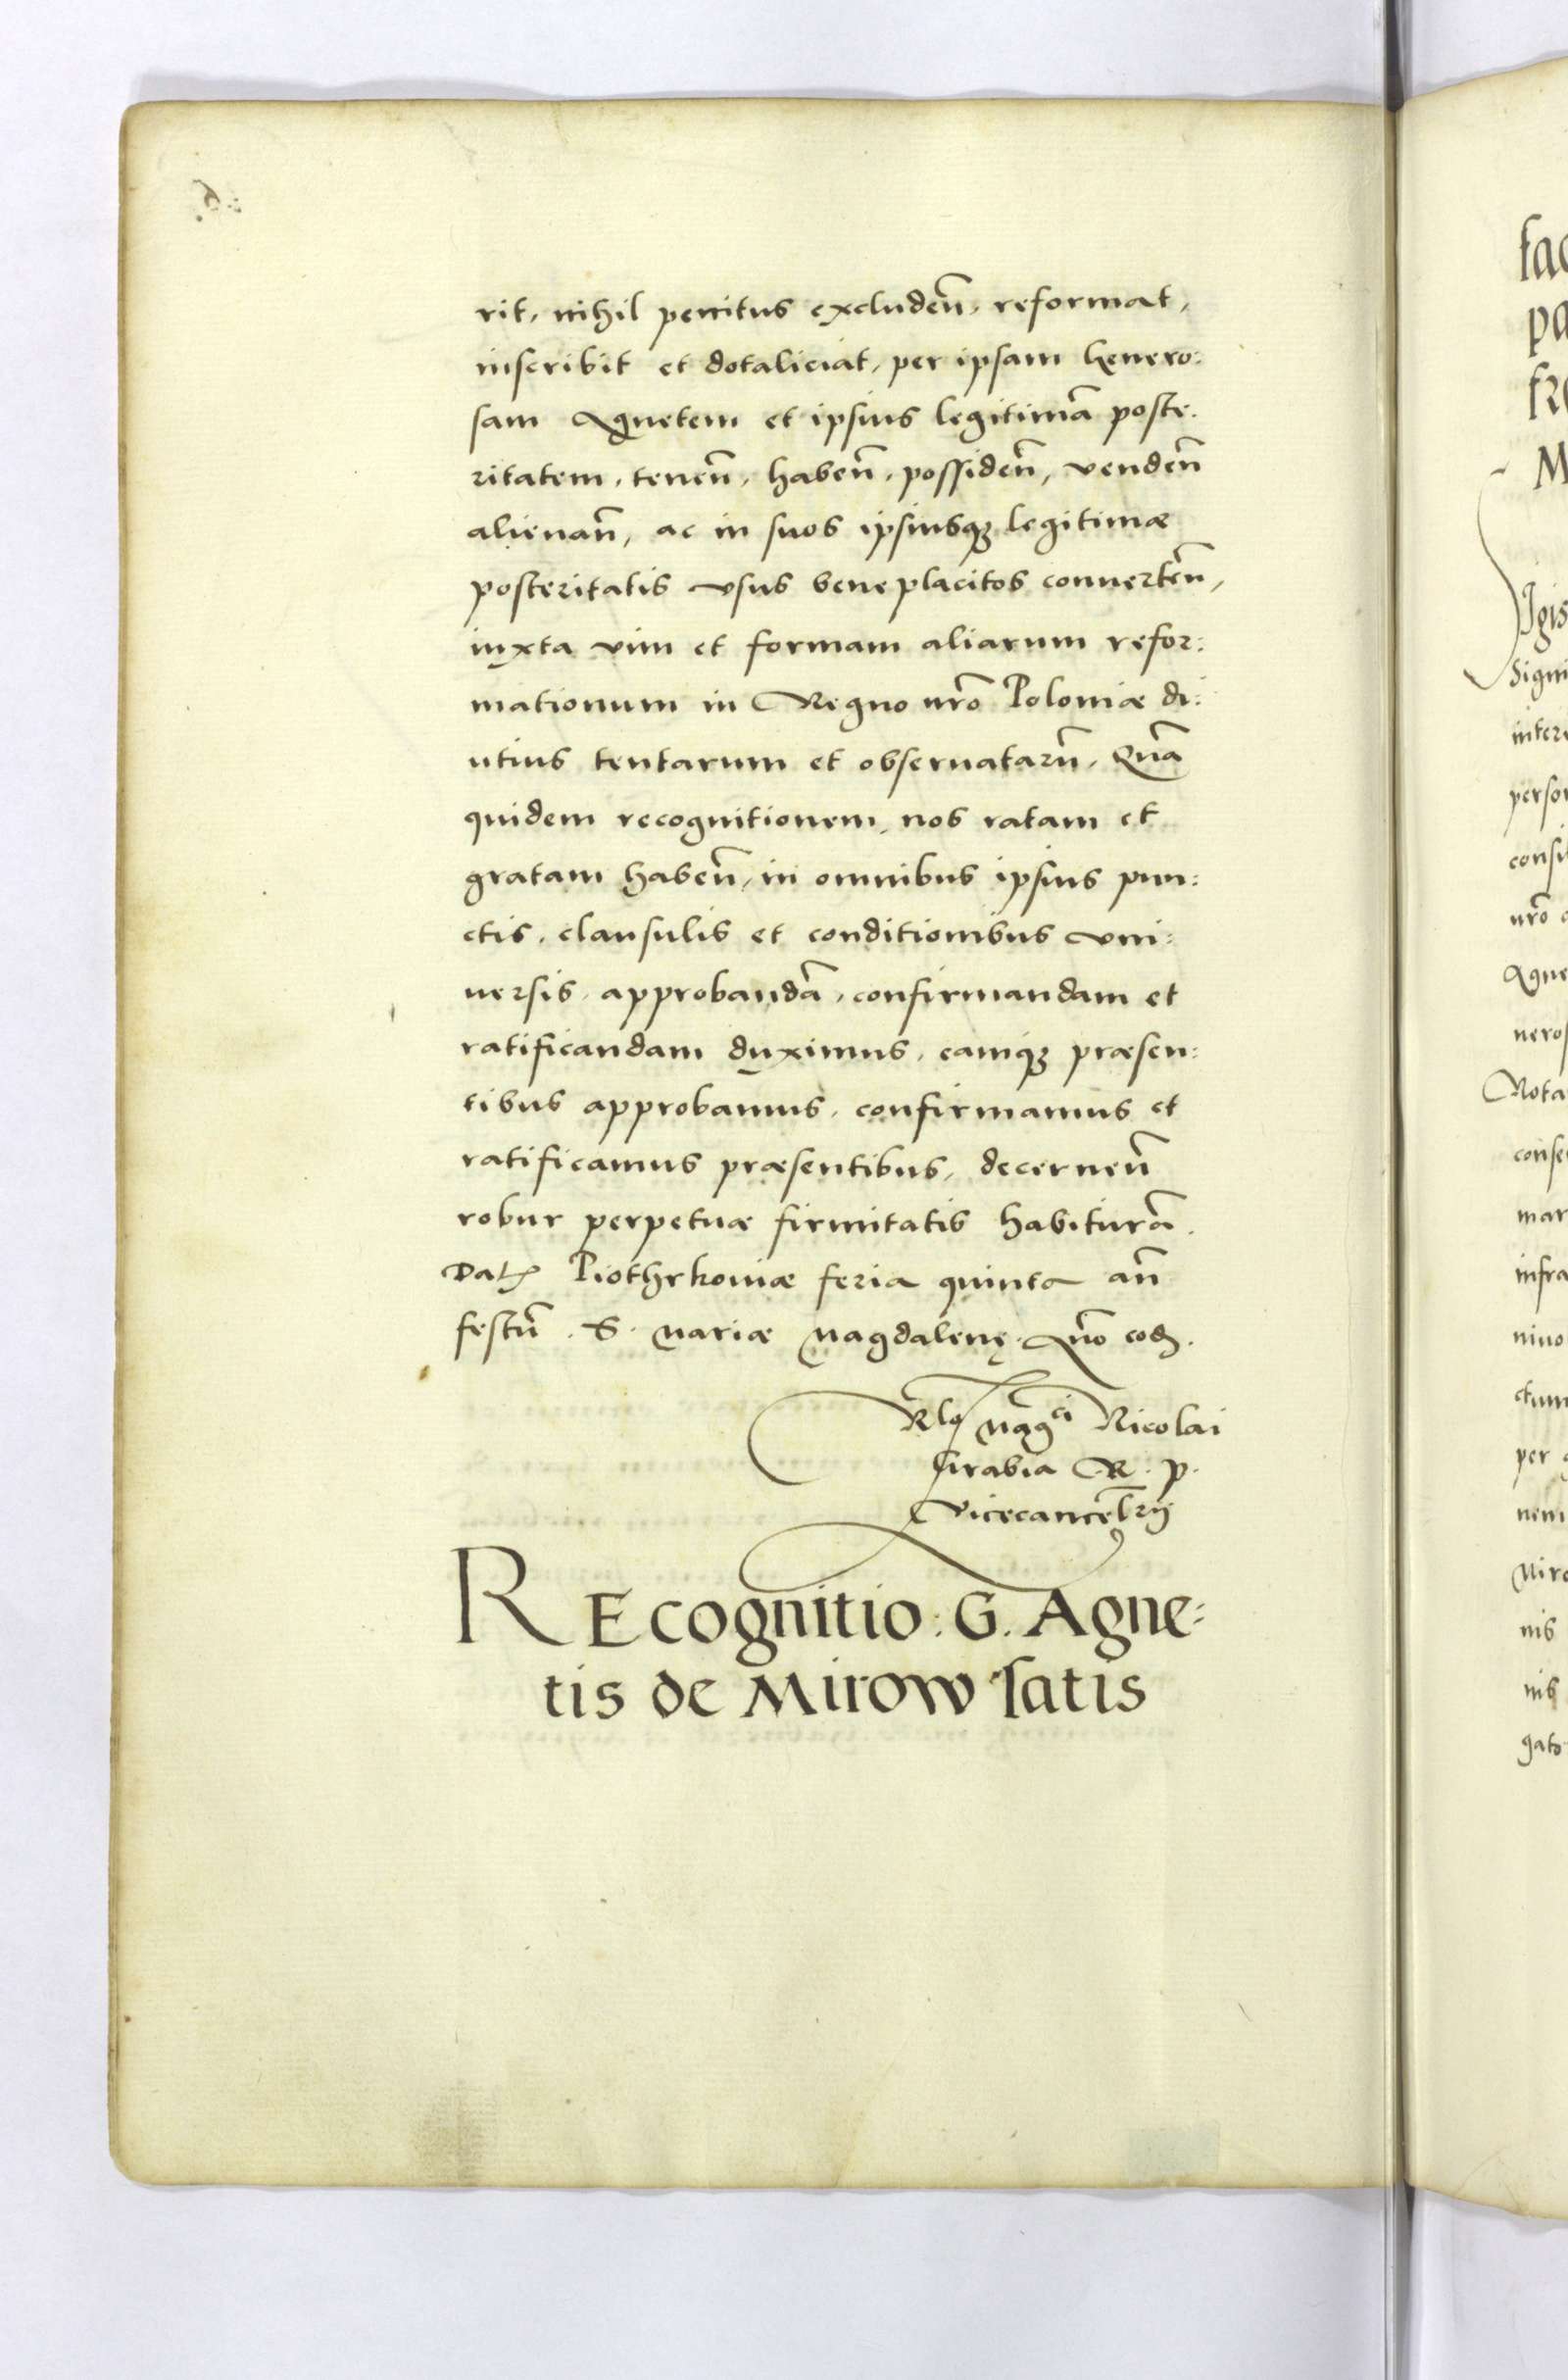 rit, nihil penitus excludeñ, reformat,
inscribit et dotaliciat, per ipsam Genero:
sam Agnetem et ipsius legitimā poste:
ritatem, teneñ, habeñ, possideñ, vendeñ
alienañ, ac in suos ipsiusq; legitimæ
posteritatis vsus beneplacitos conuerteñ,
iuxta vim et formam aliarum refor:
mationum in Regno nr̄o Poloniæ di:
utius tentarum et obseruatarū, Quā
quidem recognitionem, nos ratam et
gratam habeñ, in omnibus ipsius pun:
ctis, clausulis et conditionibus vni:
uersis, approbandā, confirmandam et
ratificandam duximus, eamq; præsen:
tibus approbamus, confirmamus et
ratificamus præsentibus, decerneñ
robur perpetuæ firmitatis habiturā.
Dat Piothrkoviæ feria quinta añ
festū. S. Mariæ Magdalenę. Āño eod.
Rlō Mag̅ci Nicolai
Grabia R. P.
Vicecancel̅rij
REcognitio: G. Agne:
tis de Mirow satis
fac
pa
fr
M
igis
Signi
inter
person
consi
nr̄o
Agne
neros
Nota
conse
mar
infra
nino
ctum
per
nem
Miro
nis
nis
gato